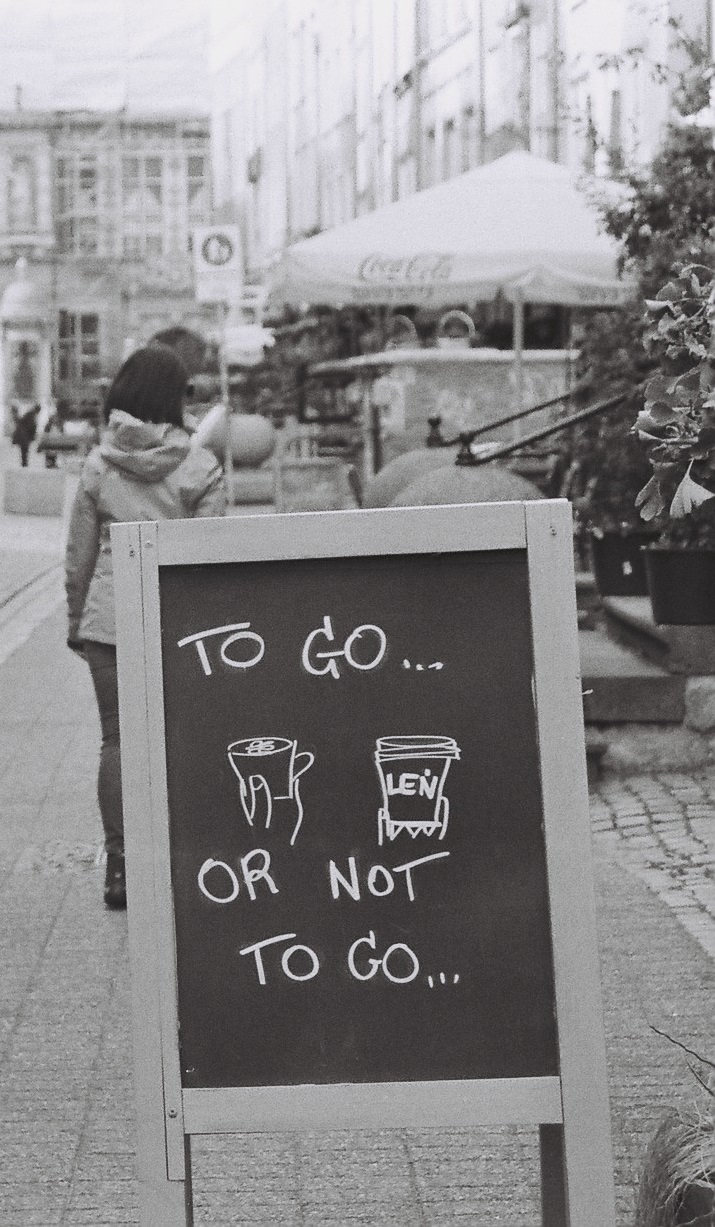 Coca-Cola
TO GO...
LEŃ
OR NOT
TO GO...